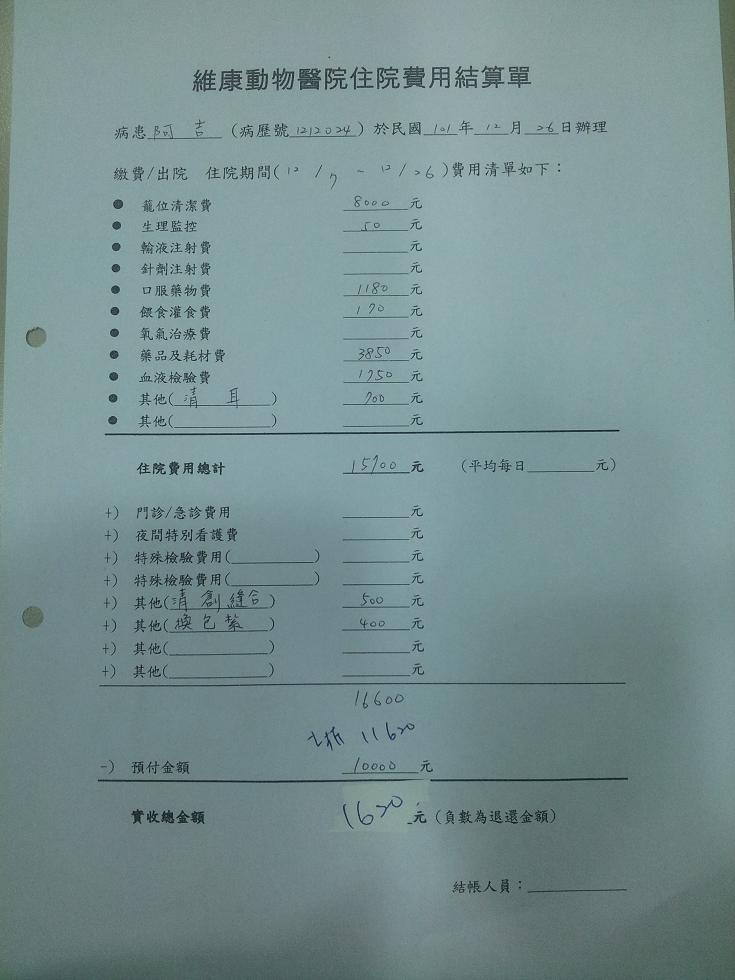 維康動物醫院住院費用結算單
病患 阿吉 (病歷號 1212024) 於民國 101 年 12 月 26 日辦理
繳費/出院 住院期間( 12 / 7 ~ 12 / 26 )費用清單如下：
● 籠位清潔費 8000 元
● 生理監控 50 元
● 輸液注射費 ______元
● 針劑注射費 ______元
● 口服藥物費 1180 元
● 餵食灌食費 170 元
● 氧氣治療費 ______元
● 藥品及耗材費 3850 元
● 血液檢驗費 1750 元
● 其他( 清耳 ) 700 元
● 其他(__________) ______元
住院費用總計 15700 元 (平均每日______元)
+) 門診/急診費用 ______元
+) 夜間特別看護費 ______元
+) 特殊檢驗費用(________) ______元
+) 特殊檢驗費用(________) ______元
+) 其他( 清創縫合 ) 500 元
+) 其他( 換包紮 ) 400 元
+) 其他(__________) ______元
+) 其他(__________) ______元
16600
七折 11620
-) 預付金額 10000 元
實收總金額 1620 元 (負數為退還金額)
結帳人員：__________